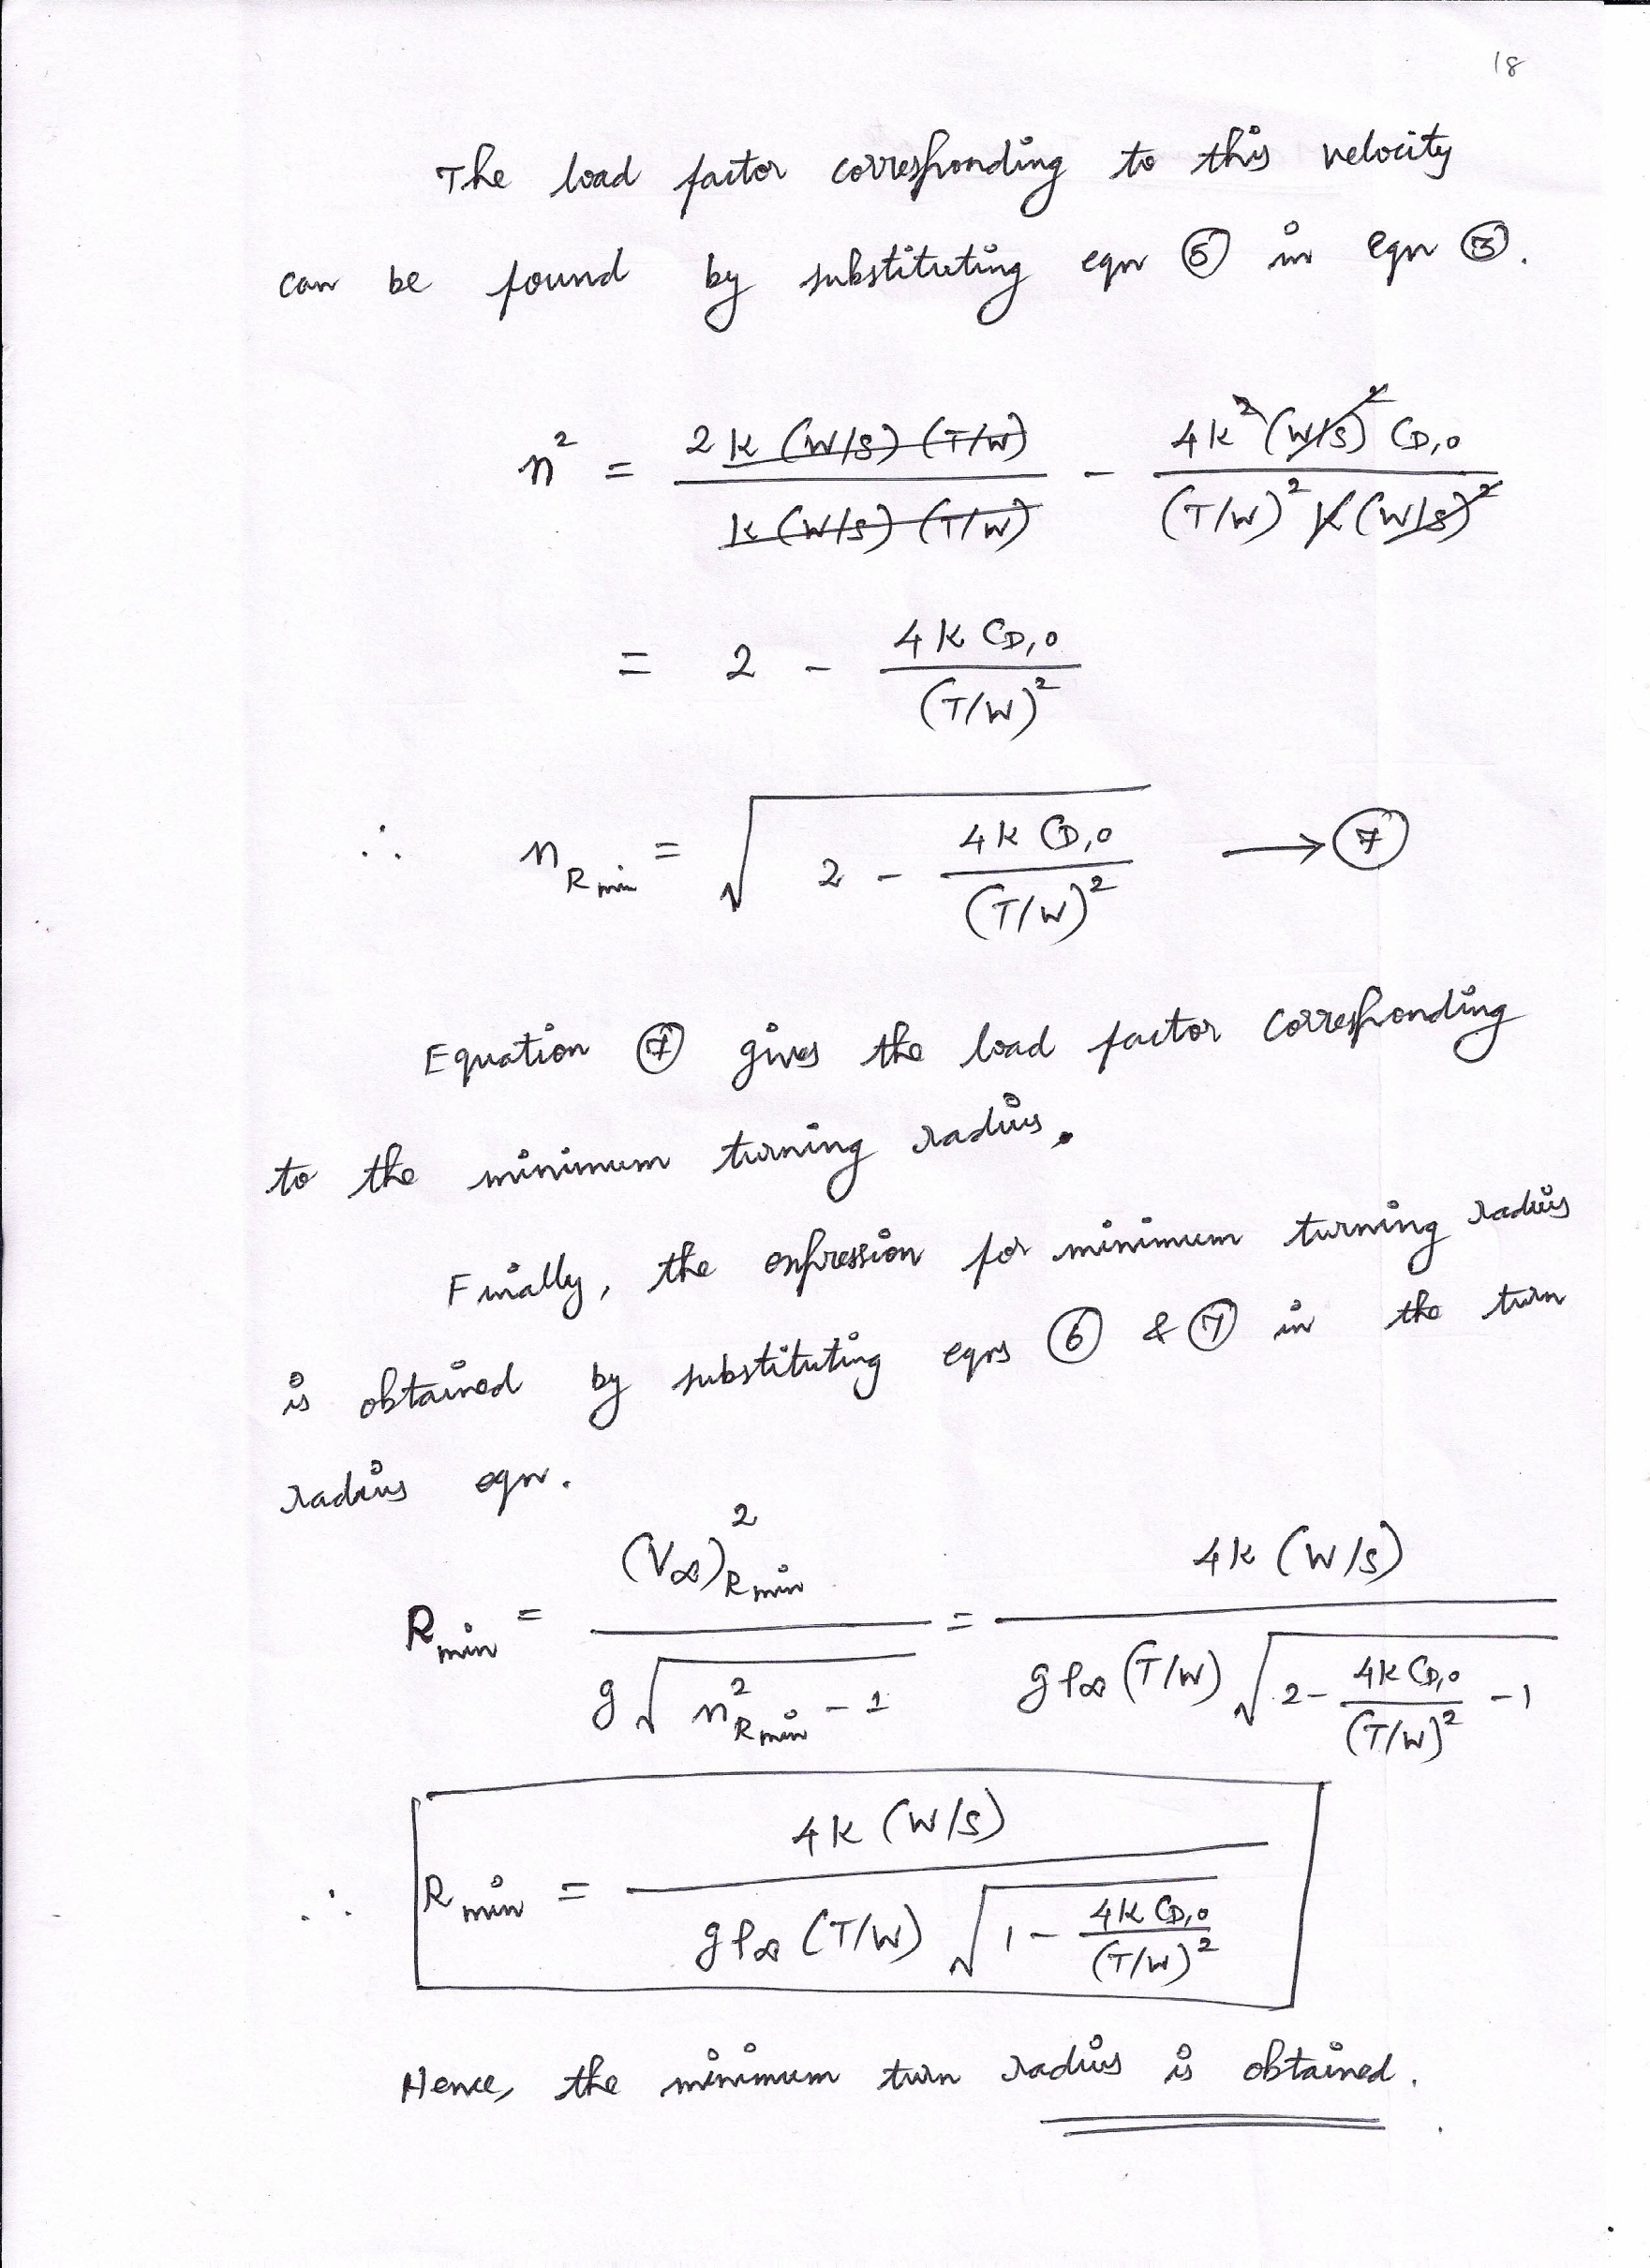 18
The load factor corresponding to this velocity
can be found by substituting eqn ⑤ in eqn ③.
n² = 2K (W/S) (T/W) / K (W/S) (T/W) - 4K² (W/S)² C_D,0 / (T/W)² K (W/S)²
= 2 - 4K C_D,0 / (T/W)²
∴ n_Rmin = √(2 - 4K C_D,0 / (T/W)²) → ⑦
Equation ⑦ gives the load factor corresponding
to the minimum turning radius.
Finally, the expression for minimum turning radius
is obtained by substituting eqns ⑥ & ⑦ in the turn
radius eqn.
R_min = (V∞)²_Rmin / g √(n²_Rmin - 1) = 4K (W/S) / gρ∞ (T/W) √(2 - 4K C_D,0 / (T/W)² - 1)
∴ R_min = 4K (W/S) / gρ∞ (T/W) √(1 - 4K C_D,0 / (T/W)²)
Hence, the minimum turn radius is obtained.